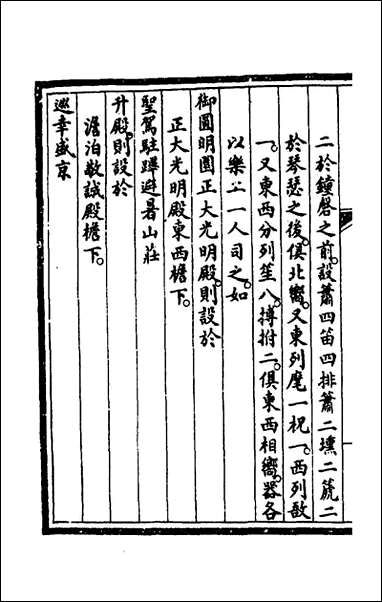 二於鐘磬之前設簫四笛四排簫二壎二篪二
於琴瑟之後俱北嚮又東列麾一柷一西列敔
一又東西分列笙八搏拊二俱東西相嚮器各
以樂工一人司之如
御圓明園正大光明殿則設於
正大光明殿東西檐下
聖駕駐蹕避暑山莊
升殿則設於
澹泊敬誠殿檐下
巡幸盛京